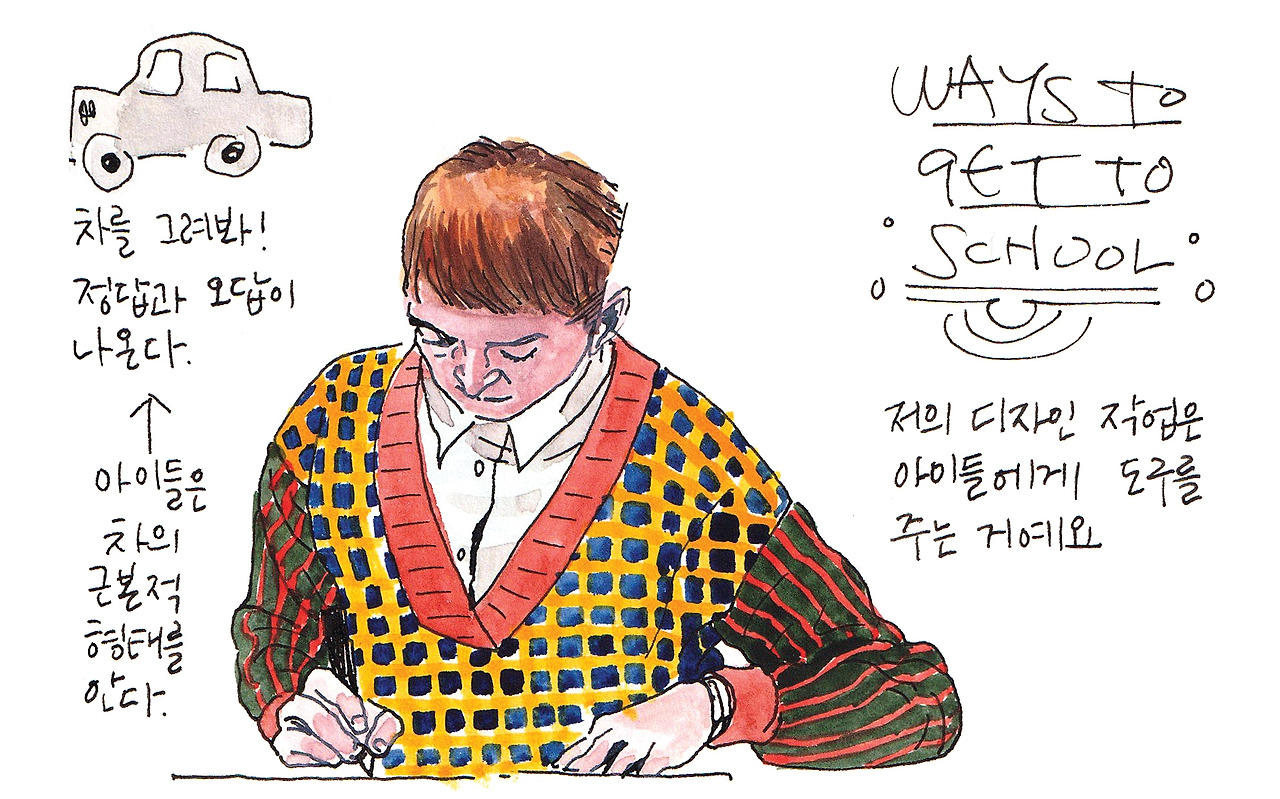 차를 그려봐!
정답과 오답이
나온다.
아이들은
차의
근본적
형태를
안다.
WAYS TO
GET TO
SCHOOL
저의 디자인 작업은
아이들에게 도구를
주는 거예요